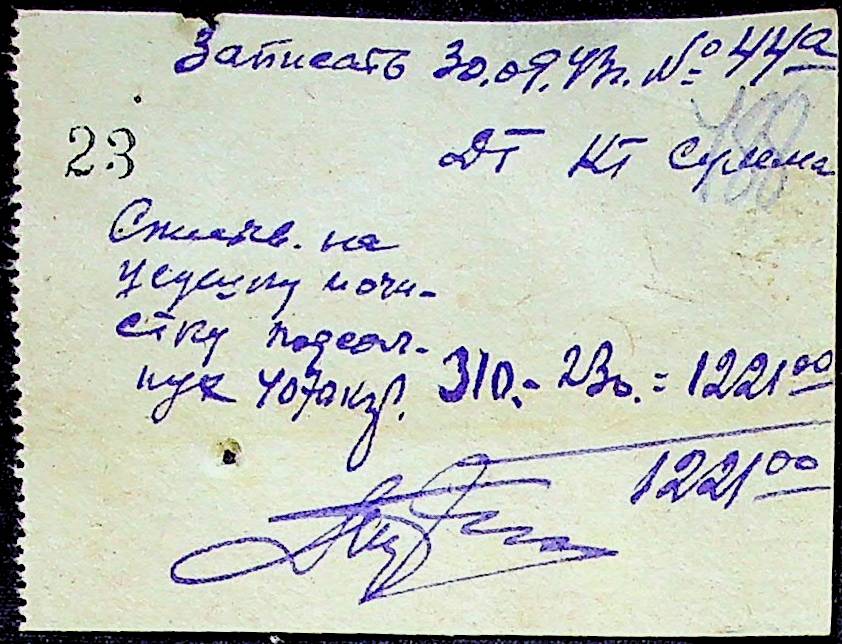 Записать 30.09.43г. № 44а
188
23
ДТ КТ Сумма
Списыв. на
усушку и очи-
стку подсол-
нух 4070 кгр. 310.- 230.= 1221 00
1221 00